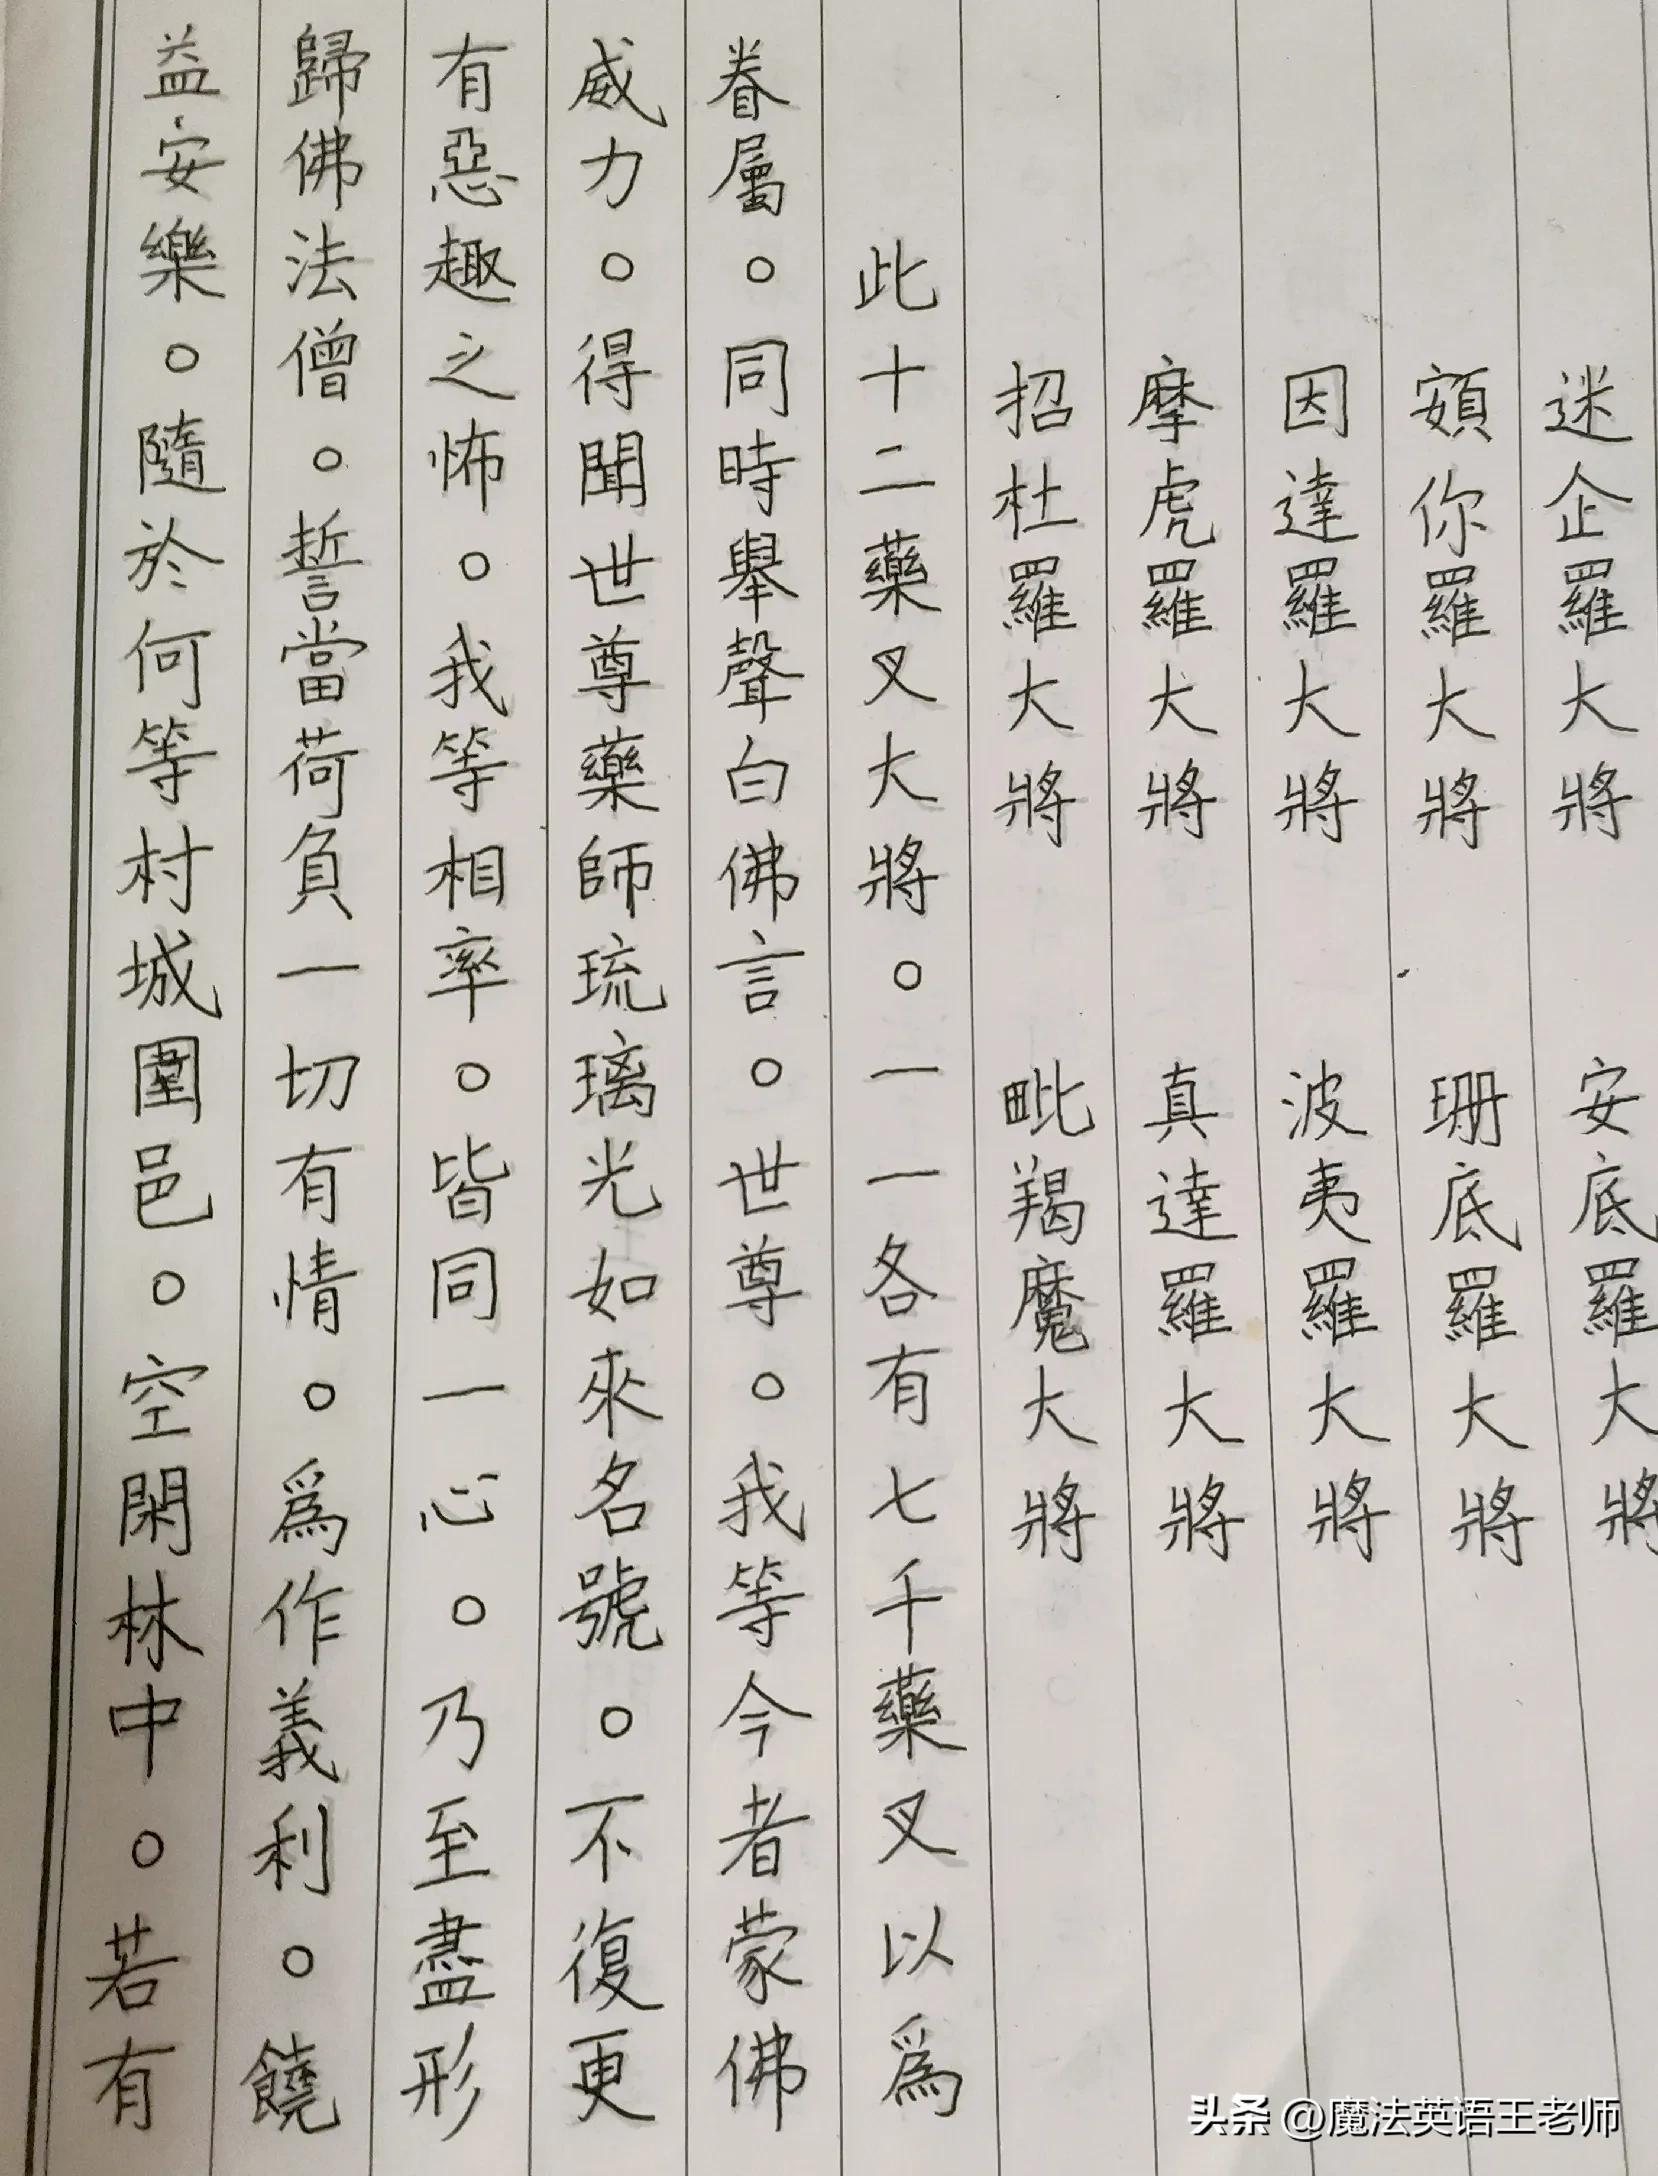 迷企羅大將　安底羅大將
頞你羅大將　珊底羅大將
因達羅大將　波夷羅大將
摩虎羅大將　真達羅大將
招杜羅大將　毗羯魔大將
此十二藥叉大將。一一各有七千藥叉以為
眷屬。同時舉聲白佛言。世尊。我等今者蒙佛
威力。得聞世尊藥師琉璃光如來名號。不復更
有惡趣之怖。我等相率。皆同一心。乃至盡形
歸佛法僧。誓當荷負一切有情。為作義利。饒
益安樂。隨於何等村城圍邑。空閑林中。若有
头条 @魔法英语王老师